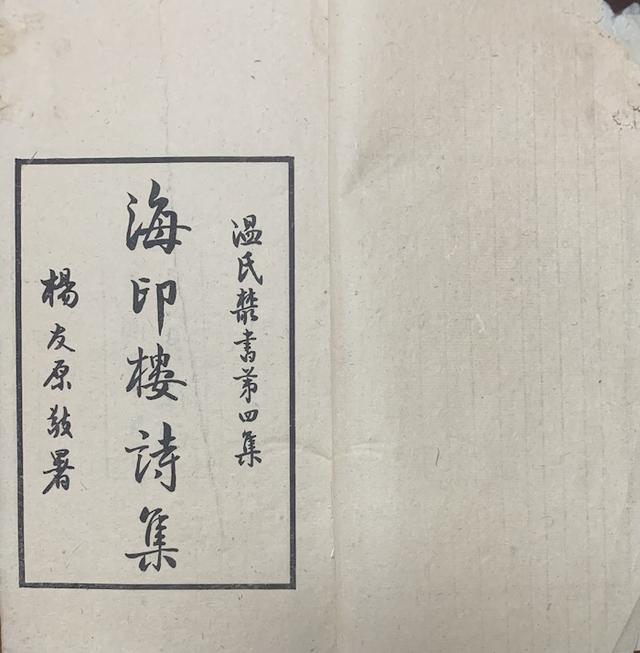 溫氏叢書第四集
海印樓詩集
楊友原敬署